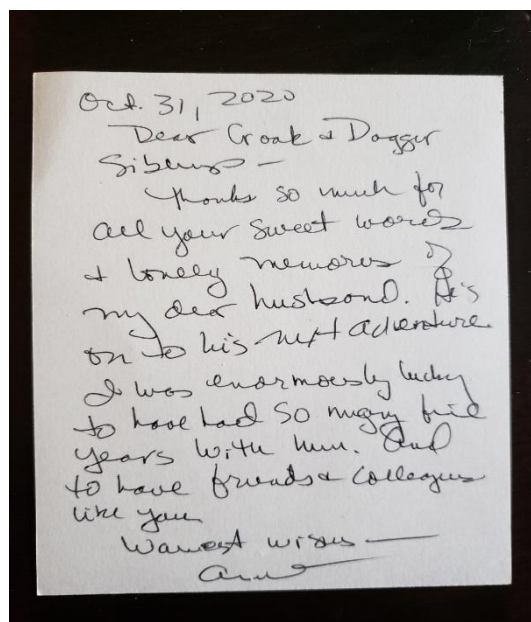 Oct. 31, 2020
Dear Croak & Dagger
Siblings —
Thanks so much for
all your sweet words
& lovely memories of
my dear husband. He's
on to his next adventure.
I was enormously lucky
to have had so many
years with him. And
to have friends & colleagues
like you.
Warmest wishes —